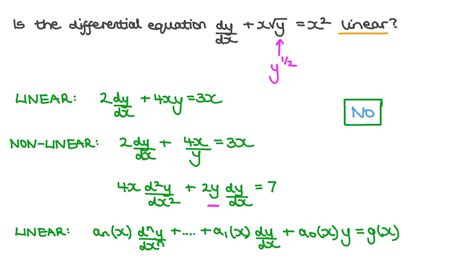 Is the differential equation dy/dx + x√y = x² linear?
y^1/2
LINEAR: 2dy/dx + 4xy = 3x
No
NON-LINEAR: 2dy/dx + 4x/y = 3x
4x d²y/dx² + 2y dy/dx = 7
LINEAR: aₙ(x) dⁿy/dxⁿ + .... + a₁(x) dy/dx + a₀(x) y = g(x)